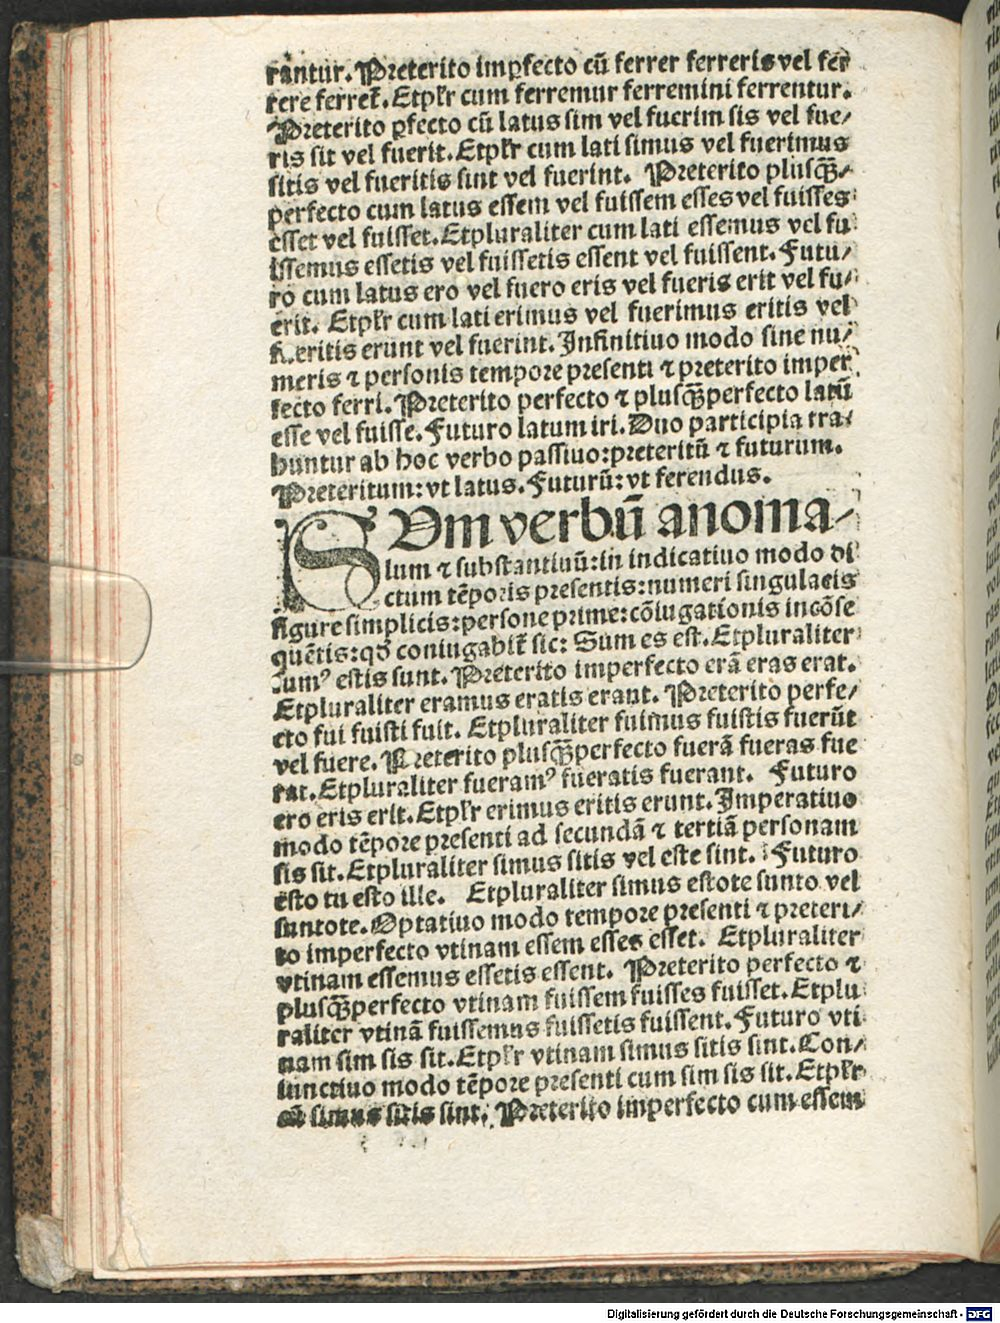 rantur. Preterito imꝑfecto cū ferrer ferreris vel fer
rere ferret̄. Et pl̄r cum ferremur ferremini ferrentur.
Preterito ꝑfecto cū latus sim vel fuerim sis vel fue/
ris sit vel fuerit. Et pl̄r cum lati simus vel fuerimus
sitis vel fueritis sint vel fuerint. Preterito plusq̄ꝫ/
perfecto cum latus essem vel fuissem esses vel fuisses
esset vel fuisset. Et pluraliter cum lati essemus vel fu
issemus essetis vel fuissetis essent vel fuissent. Futu/
ro cum latus ero vel fuero eris vel fueris erit vel fu/
erit. Et pl̄r cum lati erimus vel fuerimus eritis vel
fueritis erunt vel fuerint. Infinitiuo modo sine nu/
meris ⁊ personis tempore presenti ⁊ preterito imper
fecto ferri. Preterito perfecto ⁊ plusq̄ꝫperfecto latū
esse vel fuisse. Futuro latum iri. Duo participia tra/
huntur ab hoc verbo passiuo: preteritū ⁊ futurum.
Preteritum: vt latus. Futurū: vt ferendus.
SUm verbū anoma/
lum ⁊ substantiuū: in indicatiuo modo di
ctum tēporis presentis: numeri singularis
figure simplicis: persone prime: cōiugationis incōse
quētis: qd̄ coniugabit̄ sic: Sum es est. Et pluraliter
sumꝰ estis sunt. Preterito imperfecto erā eras erat.
Et pluraliter eramus eratis erant. Preterito perfe/
cto fui fuisti fuit. Et pluraliter fuimus fuistis fuerūt
vel fuere. Preterito plusq̄ꝫperfecto fuerā fueras fue
rat. Et pluraliter fueramꝰ fueratis fuerant. Futuro
ero eris erit. Et pl̄r erimus eritis erunt. Imperatiuo
modo tēpore presenti ad secundā ⁊ tertiā personam
sis sit. Et pluraliter simus sitis vel este sint. Futuro
esto tu esto ille. Et pluraliter simus estote sunto vel
suntote. Optatiuo modo tempore presenti ⁊ preteri/
to imperfecto vtinam essem esses esset. Et pluraliter
vtinam essemus essetis essent. Preterito perfecto ⁊
plusq̄ꝫperfecto vtinam fuissem fuisses fuisset. Et plu
raliter vtinā fuissemus fuissetis fuissent. Futuro vti
nam sim sis sit. Et pl̄r vtinam simus sitis sint. Con/
iunctiuo modo tēpore presenti cum sim sis sit. Et pl̄r
cū simus sitis sint. Preterito imperfecto cum essem
Digitalisierung gefördert durch die Deutsche Forschungsgemeinschaft - DFG